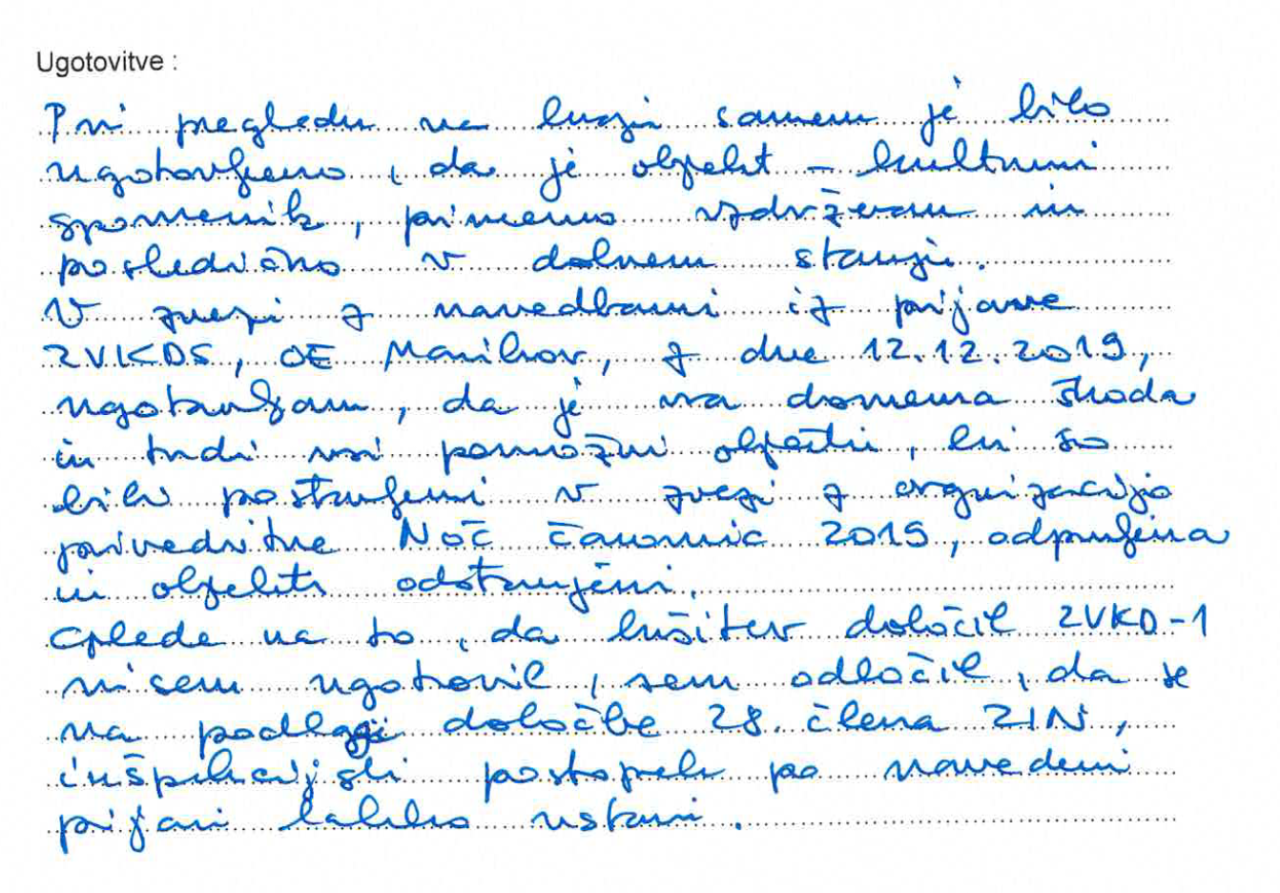 Ugotovitve :
Pri pregledu na kraju samem je bilo
ugotovljeno, da je objekt - kulturni
spomenik, primerno vzdrževan in
posledično v dobrem stanju.
V zvezi z navedbami iz prijave
ZVKDS, OE Maribor, z dne 12.12.2019,
ugotavljam, da je vsa domnevna škoda
in tudi vsi pomožni objekti, ki so
bili postavljeni v zvezi z organizacijo
prireditve Noč čarovnic 2019, odpravljena
in objekti odstranjeni.
Glede na to, da kršitev določil ZVKD-1
nisem ugotovil, sem odločil, da se
na podlagi določbe 28. člena ZIN,
inšpekcijski postopek po navedeni
prijavi lahko ustavi.